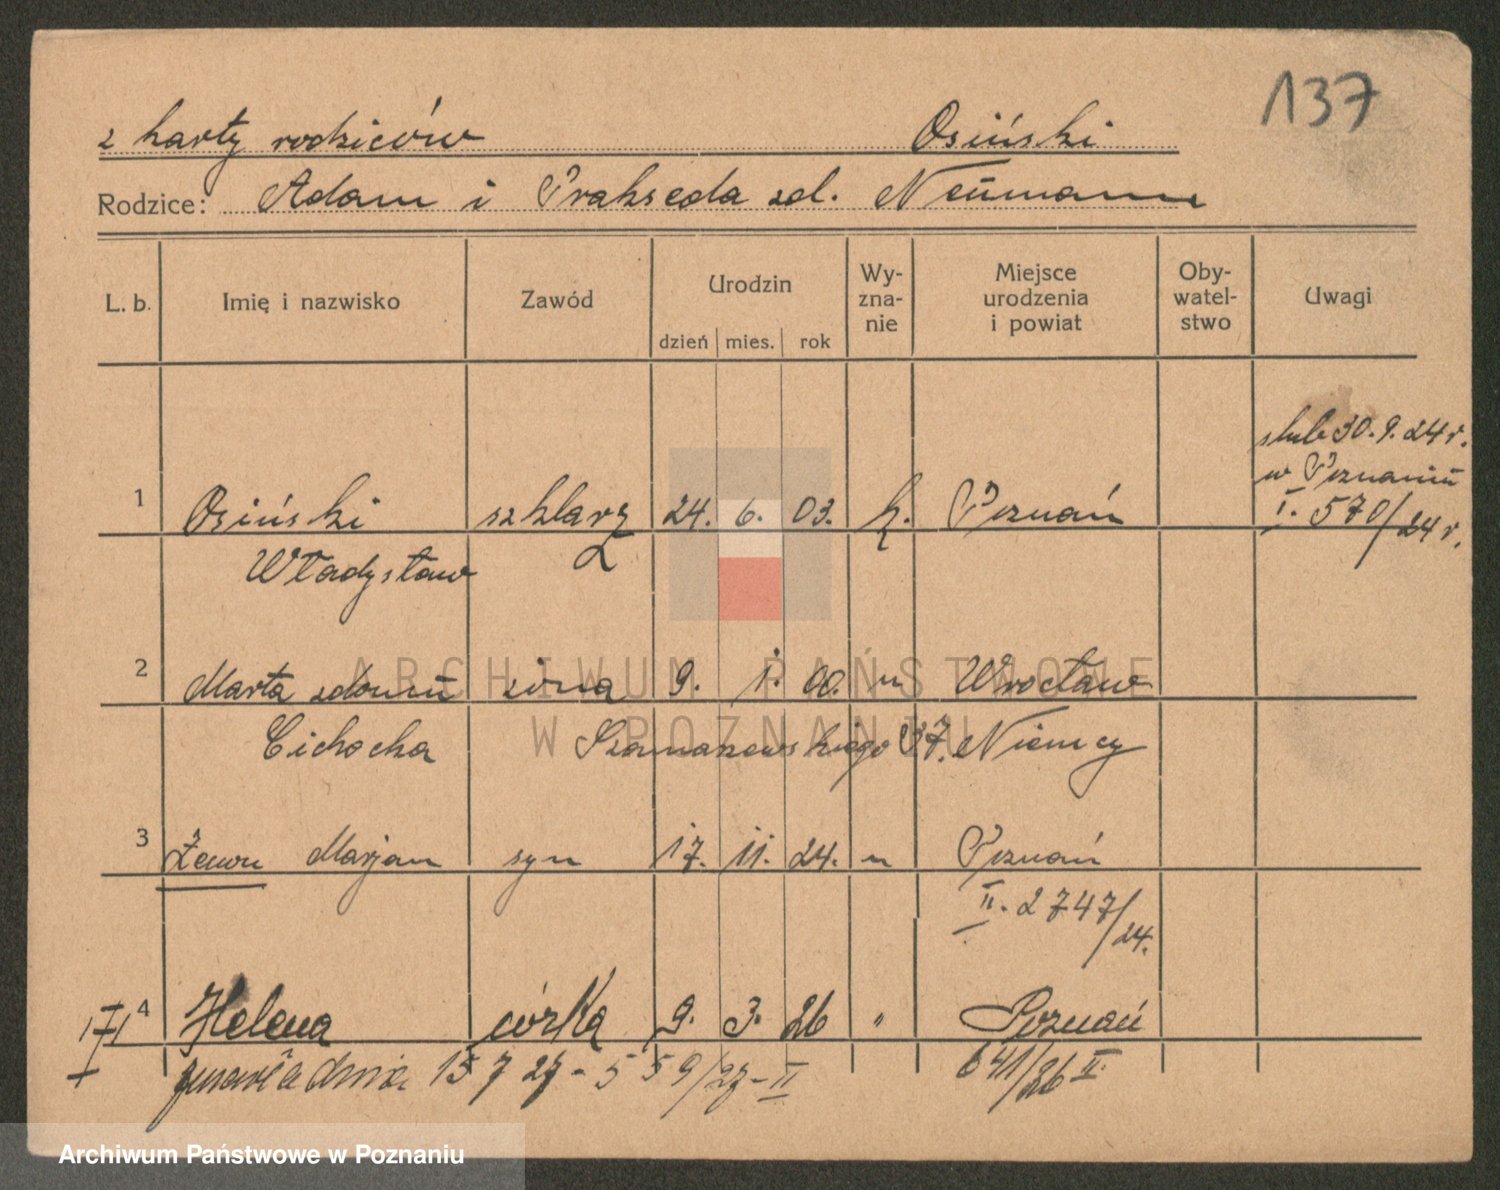 137
z karty rodziców Osiński
Rodzice: Adam i Prakseda zd. Neumann
L. b. Imię i nazwisko Zawód Urodzin dzień mies. rok Wy-zna-nie Miejsce urodzenia i powiat Oby-watel-stwo Uwagi
ślub 30.9.24 r.
w Poznaniu
1 Osiński szklarz 24. 6. 03. k. Poznań I. 570/24 r.
Władysław
2 Marta zdomu żona 9. 1. 00. " Wrocław
Cichocka Szamarzewskiego 37. Niemcy
3 Zenon Marjan syn 17. 11. 24. " Poznań
II. 2747/24.
4 Helena córka 9. 3. 26 " Poznań
zmarła dnia 15 7 27 - 559/27 - II 641/26 II.
ARCHIWUM PAŃSTWOWE
W POZNANIU
Archiwum Państwowe w Poznaniu